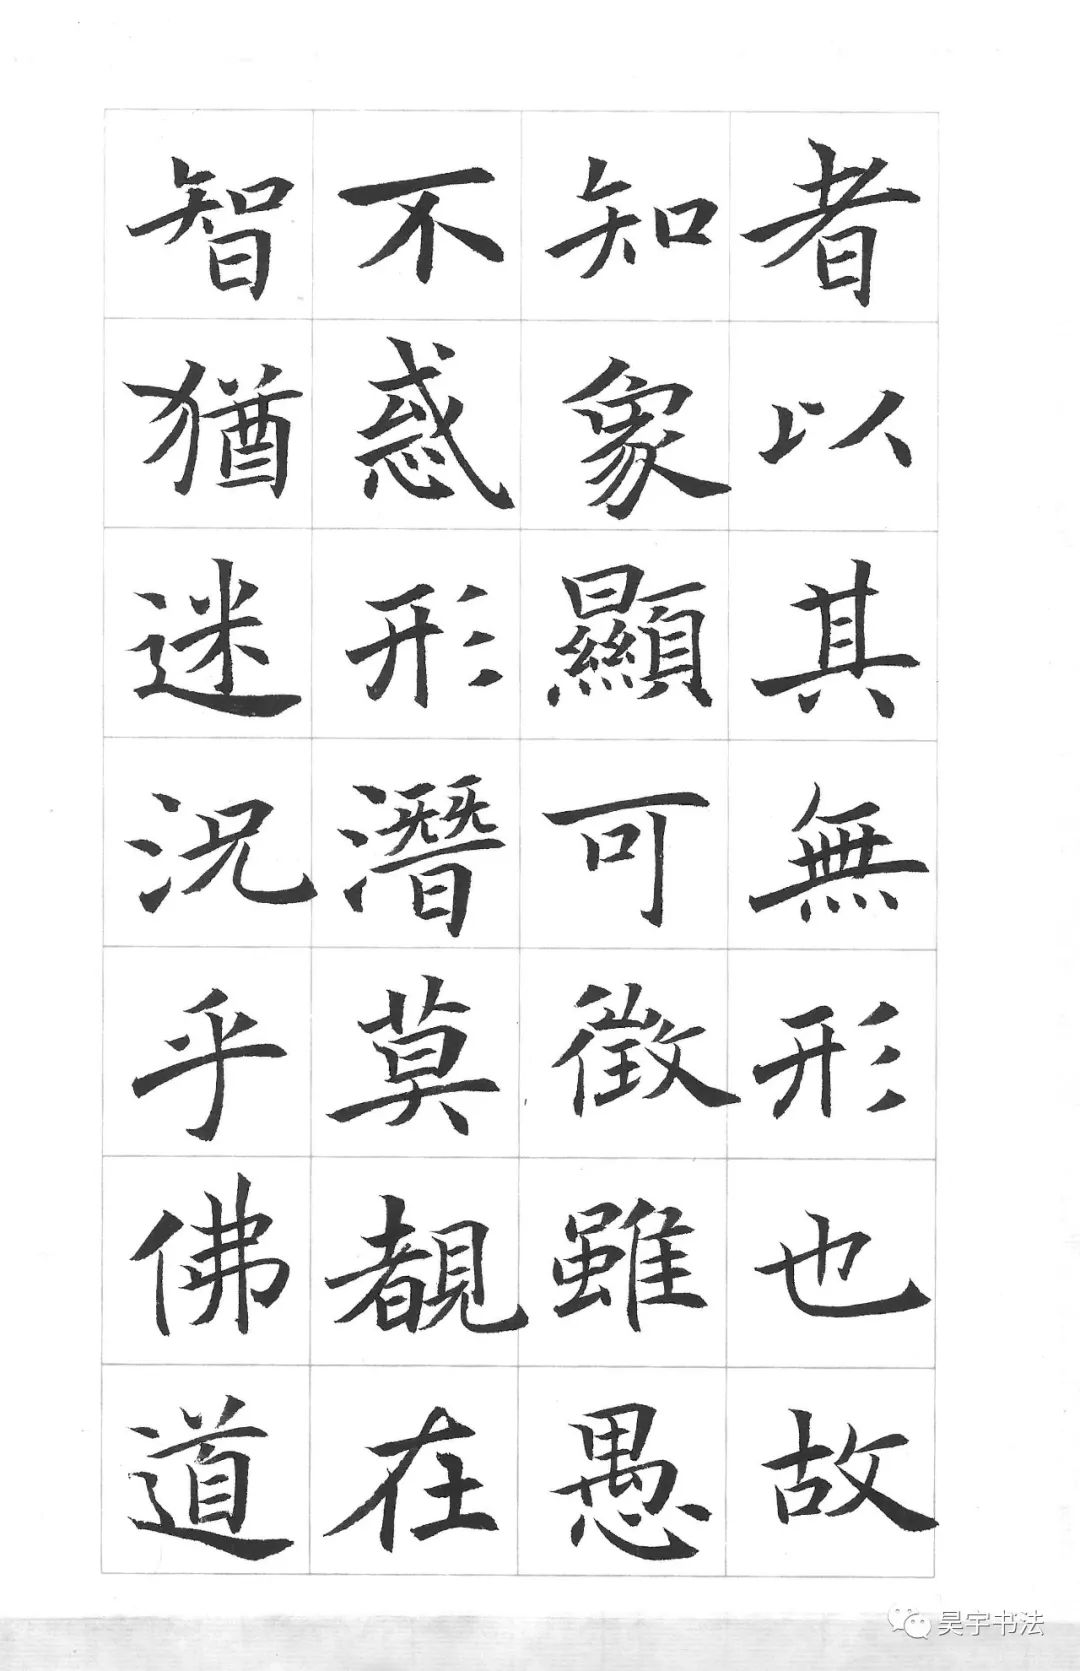 者以其無形也故
知象顯可徵雖愚
不惑形潛莫覩在
智猶迷況乎佛道
昊宇书法